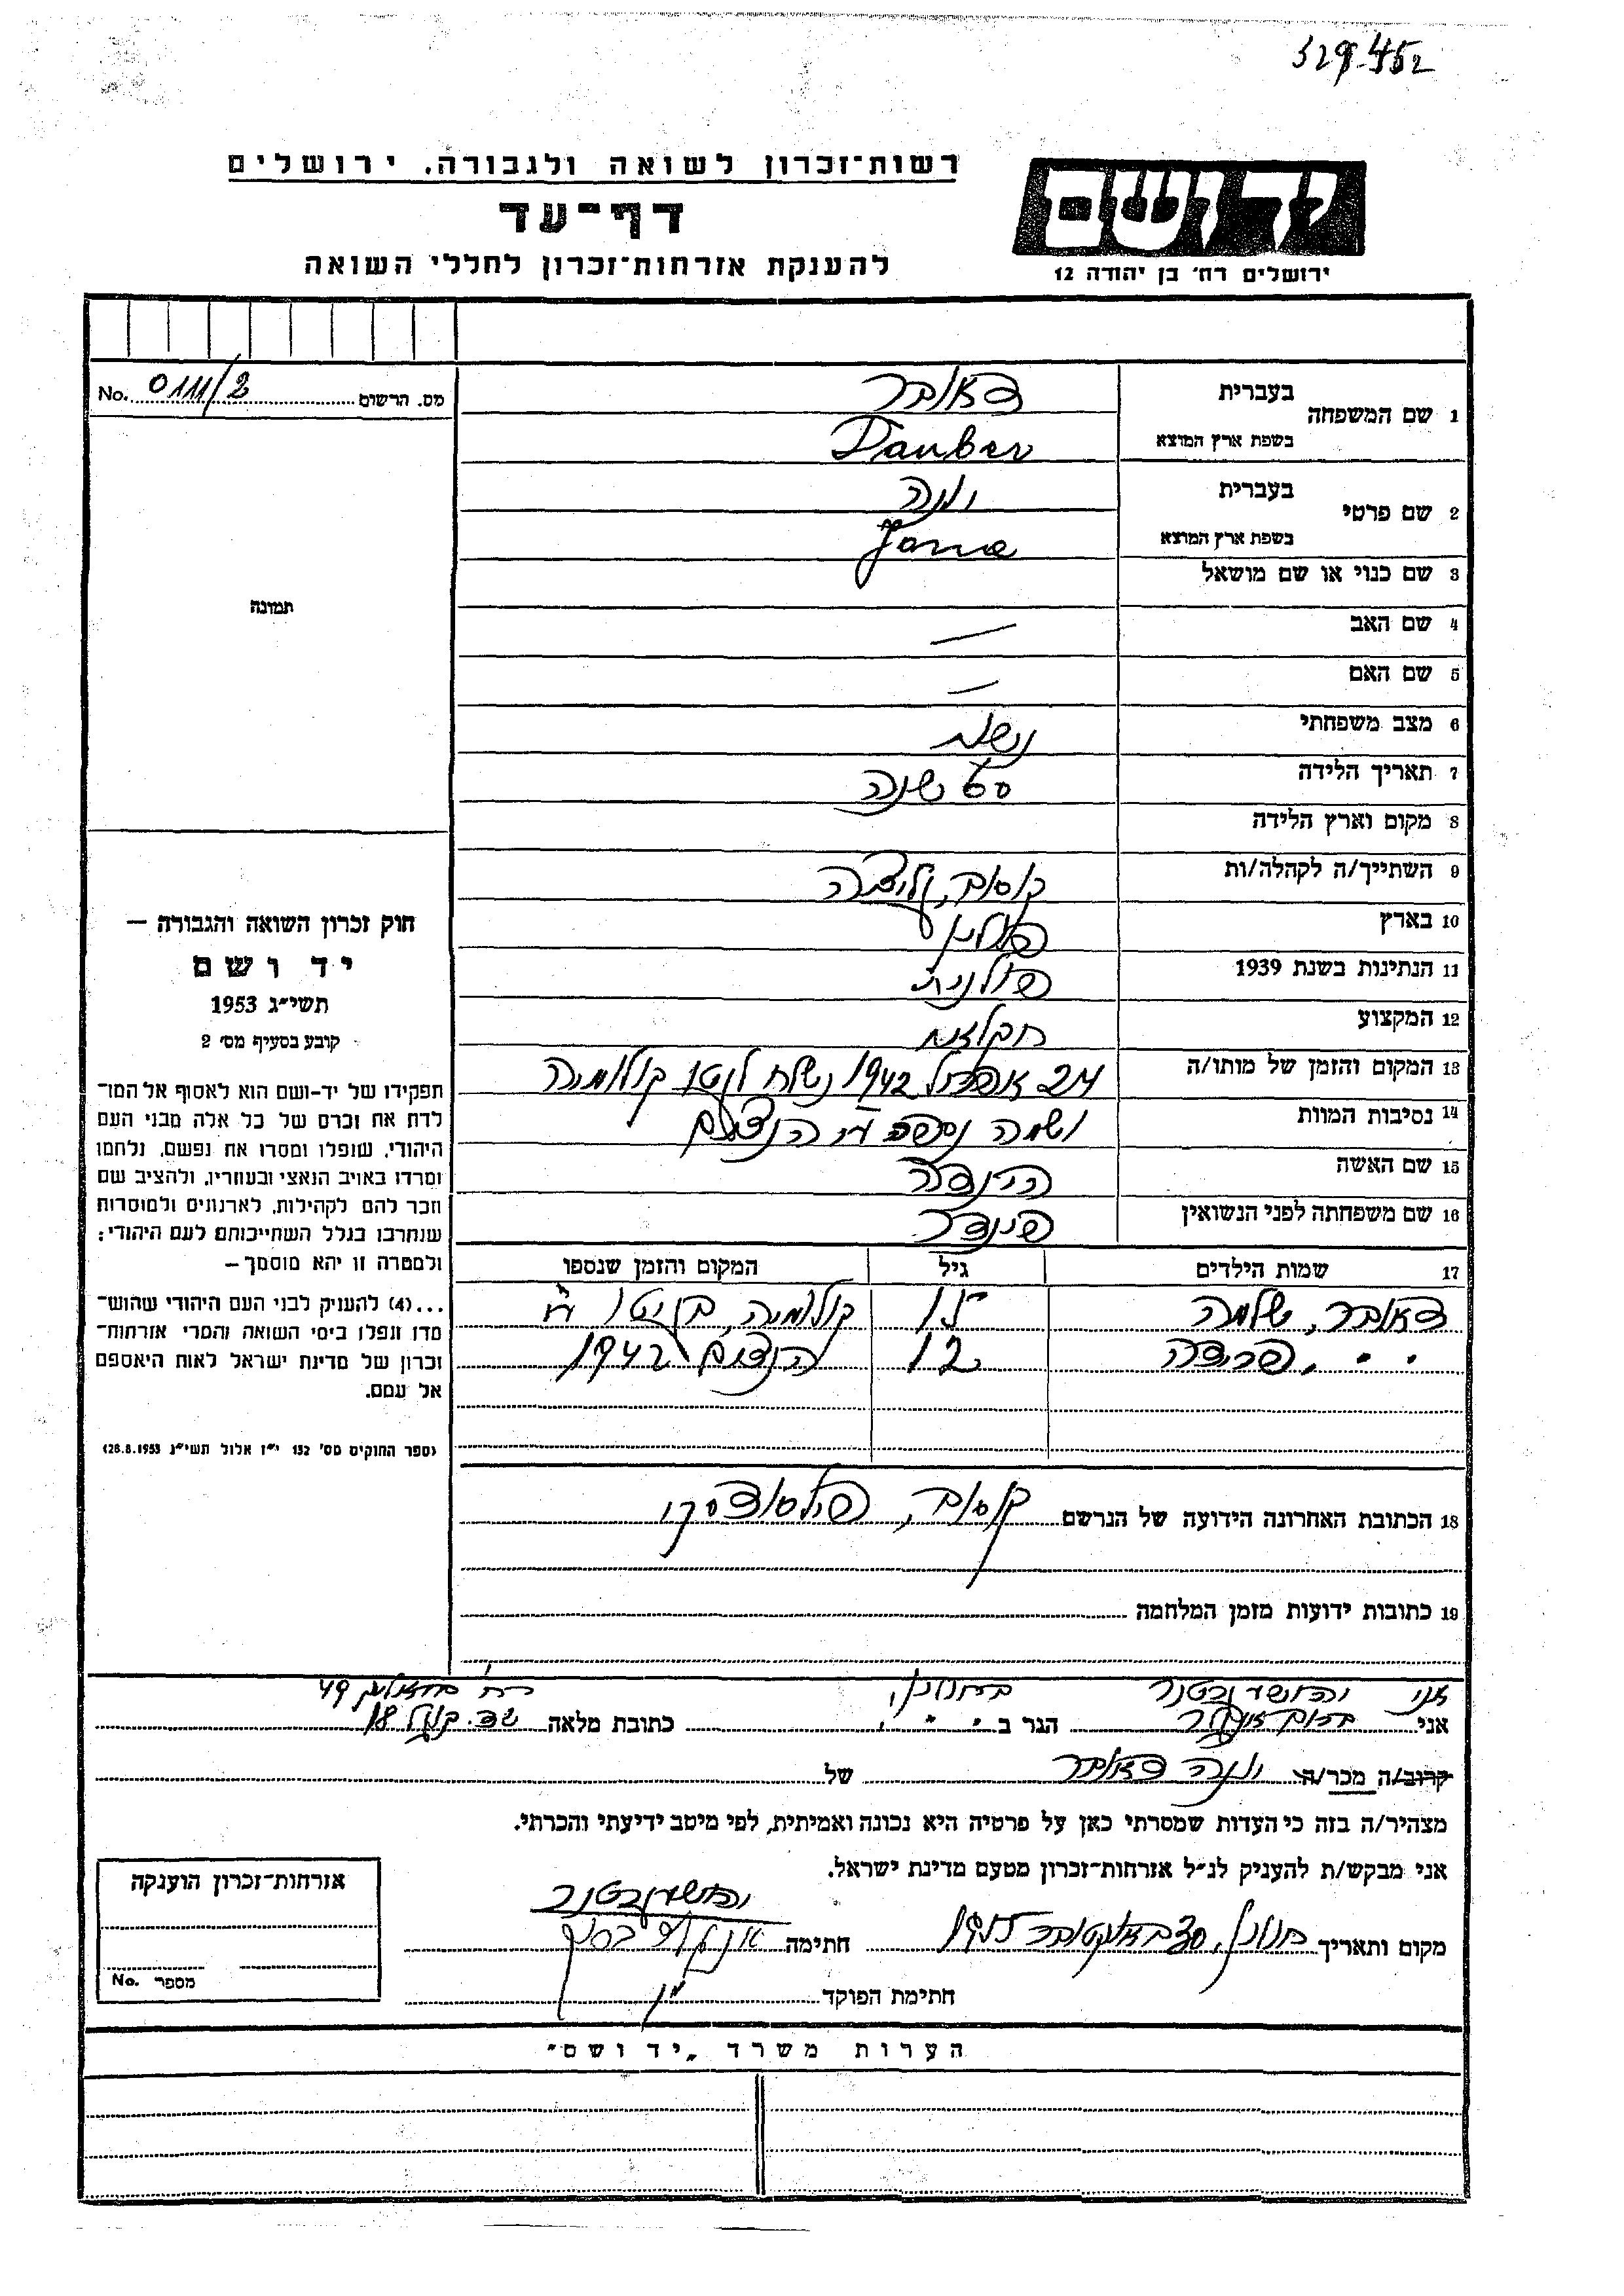 329-452
רשות־זכרון לשואה ולגבורה. ירושלים
דף־עד
להענקת אזרחות־זכרון לחללי השואה
יד ושם
ירושלים רח׳ בן יהודה 12
No. 0111/2 מס. הרשום
1 שם המשפחה
בעברית דאובר
בשפת ארץ המוצא Dauber
2 שם פרטי
בעברית יונה
בשפת ארץ המוצא Jona
3 שם כנוי או שם מושאל
4 שם האב —
5 שם האם —
6 מצב משפחתי נשוי
7 תאריך הלידה 60 שנה
8 מקום וארץ הלידה
9 השתייך/ה לקהלה/ות קוסוב, גליציה
10 בארץ פולין
11 הנתינות בשנת 1939 פולנית
12 המקצוע חקלאות
13 המקום והזמן של מותו/ה 24 אפריל 1942 נשלח לגטו קולומיה
14 נסיבות המוות ושמה נספה ע״י הנצים
15 שם האשה
16 שם משפחתה לפני הנשואין
17 שמות הילדים גיל המקום והזמן שנספו
דאובר, שלמה 15 קולומיה, בגיטו ע״י
" ", פרידה 12 הנצים 1942
18 הכתובת האחרונה הידועה של הנרשם קוסוב, פילסודסקי
19 כתובות ידועות מזמן המלחמה
תמונה
חוק זכרון השואה והגבורה –
יד ושם
תשי״ג 1953
קובע בסעיף מס׳ 2
תפקידו של יד־ושם הוא לאסוף אל המו־
לדת את זכרם של כל אלה מבני העם
היהודי, שנפלו ומסרו את נפשם, נלחמו
ומרדו באויב הנאצי ובעוזריו, ולהציב שם
וזכר להם לקהילות, לארגונים ולמוסדות
שנחרבו בגלל השתייכותם לעם היהודי;
ולמטרה זו יהא מוסמך –
...(4) להענית לבני העם היהודי שהוש־
מדו ונפלו בימי השואה והמרי אזרחות־
זכרון של מדינת ישראל לאות היאספם
אל עמם.
(ספר החוקים מס׳ 132 י״ז אלול תשי״ג 28.8.1953)
אני בחולון, רח׳ 49
אני הגר ב " " כתובת מלאה שד. 18
קרוב/ה מכר/ה יונה דאובר של
מצהיר/ה בזה כי העדות שמסרתי כאן על פרטיה היא נכונה ואמיתית, לפי מיטב ידיעתי והכרתי.
אני מבקש/ת להעניק לנ״ל אזרחות־זכרון מטעם מדינת ישראל.
מקום ותאריך חולון, 30 באוקטובר 1955 חתימה
חתימת הפוקד
אזרחות־זכרון הוענקה
מספר No.
הערות משרד „יד ושם״